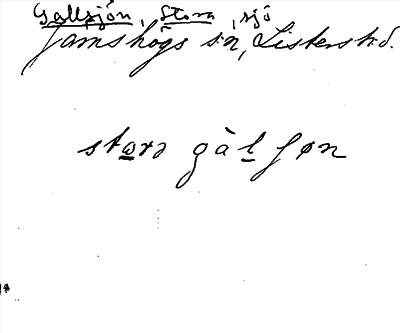 Gallsjön, Stora, sjö
Jämshögs sn, Listers hd.
stọrə gàlʃøn